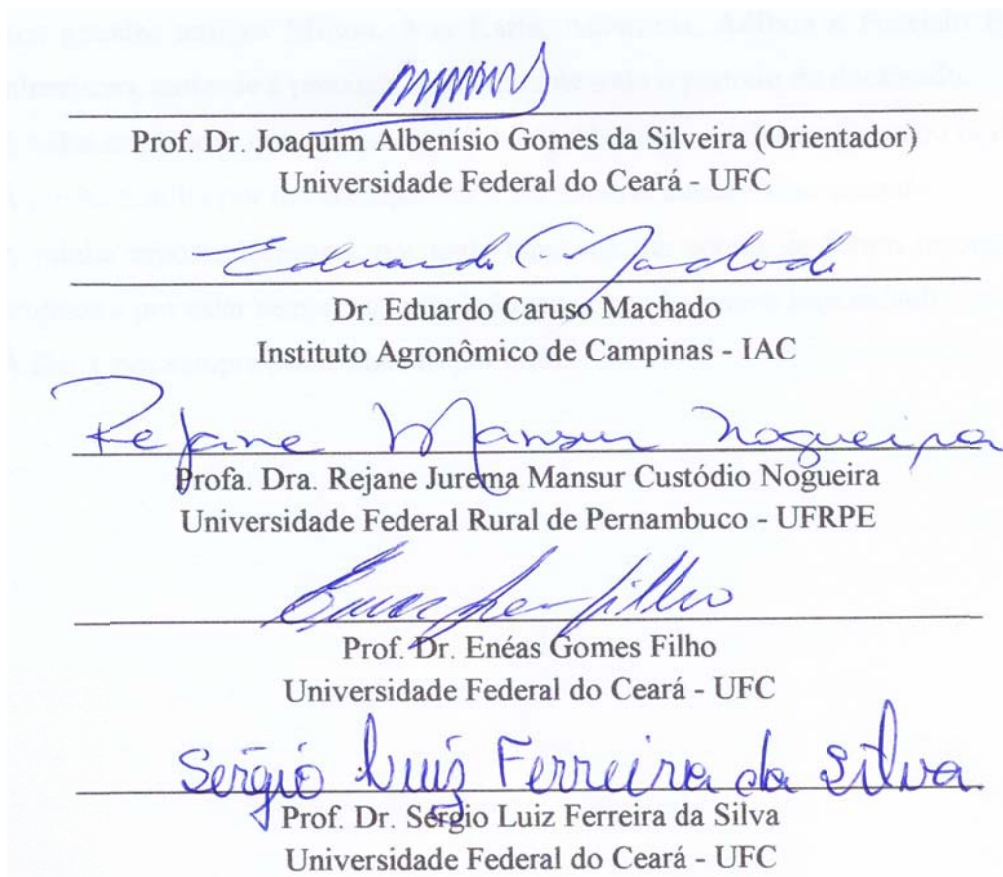 Prof. Dr. Joaquim Albenísio Gomes da Silveira (Orientador)
Universidade Federal do Ceará - UFC
Eduardo C Machado
Dr. Eduardo Caruso Machado
Instituto Agronômico de Campinas - IAC
Rejane Mansur Nogueira
Profa. Dra. Rejane Jurema Mansur Custódio Nogueira
Universidade Federal Rural de Pernambuco - UFRPE
Enéas Gomes Filho
Prof. Dr. Enéas Gomes Filho
Universidade Federal do Ceará - UFC
Sérgio Luiz Ferreira da Silva
Prof. Dr. Sérgio Luiz Ferreira da Silva
Universidade Federal do Ceará - UFC